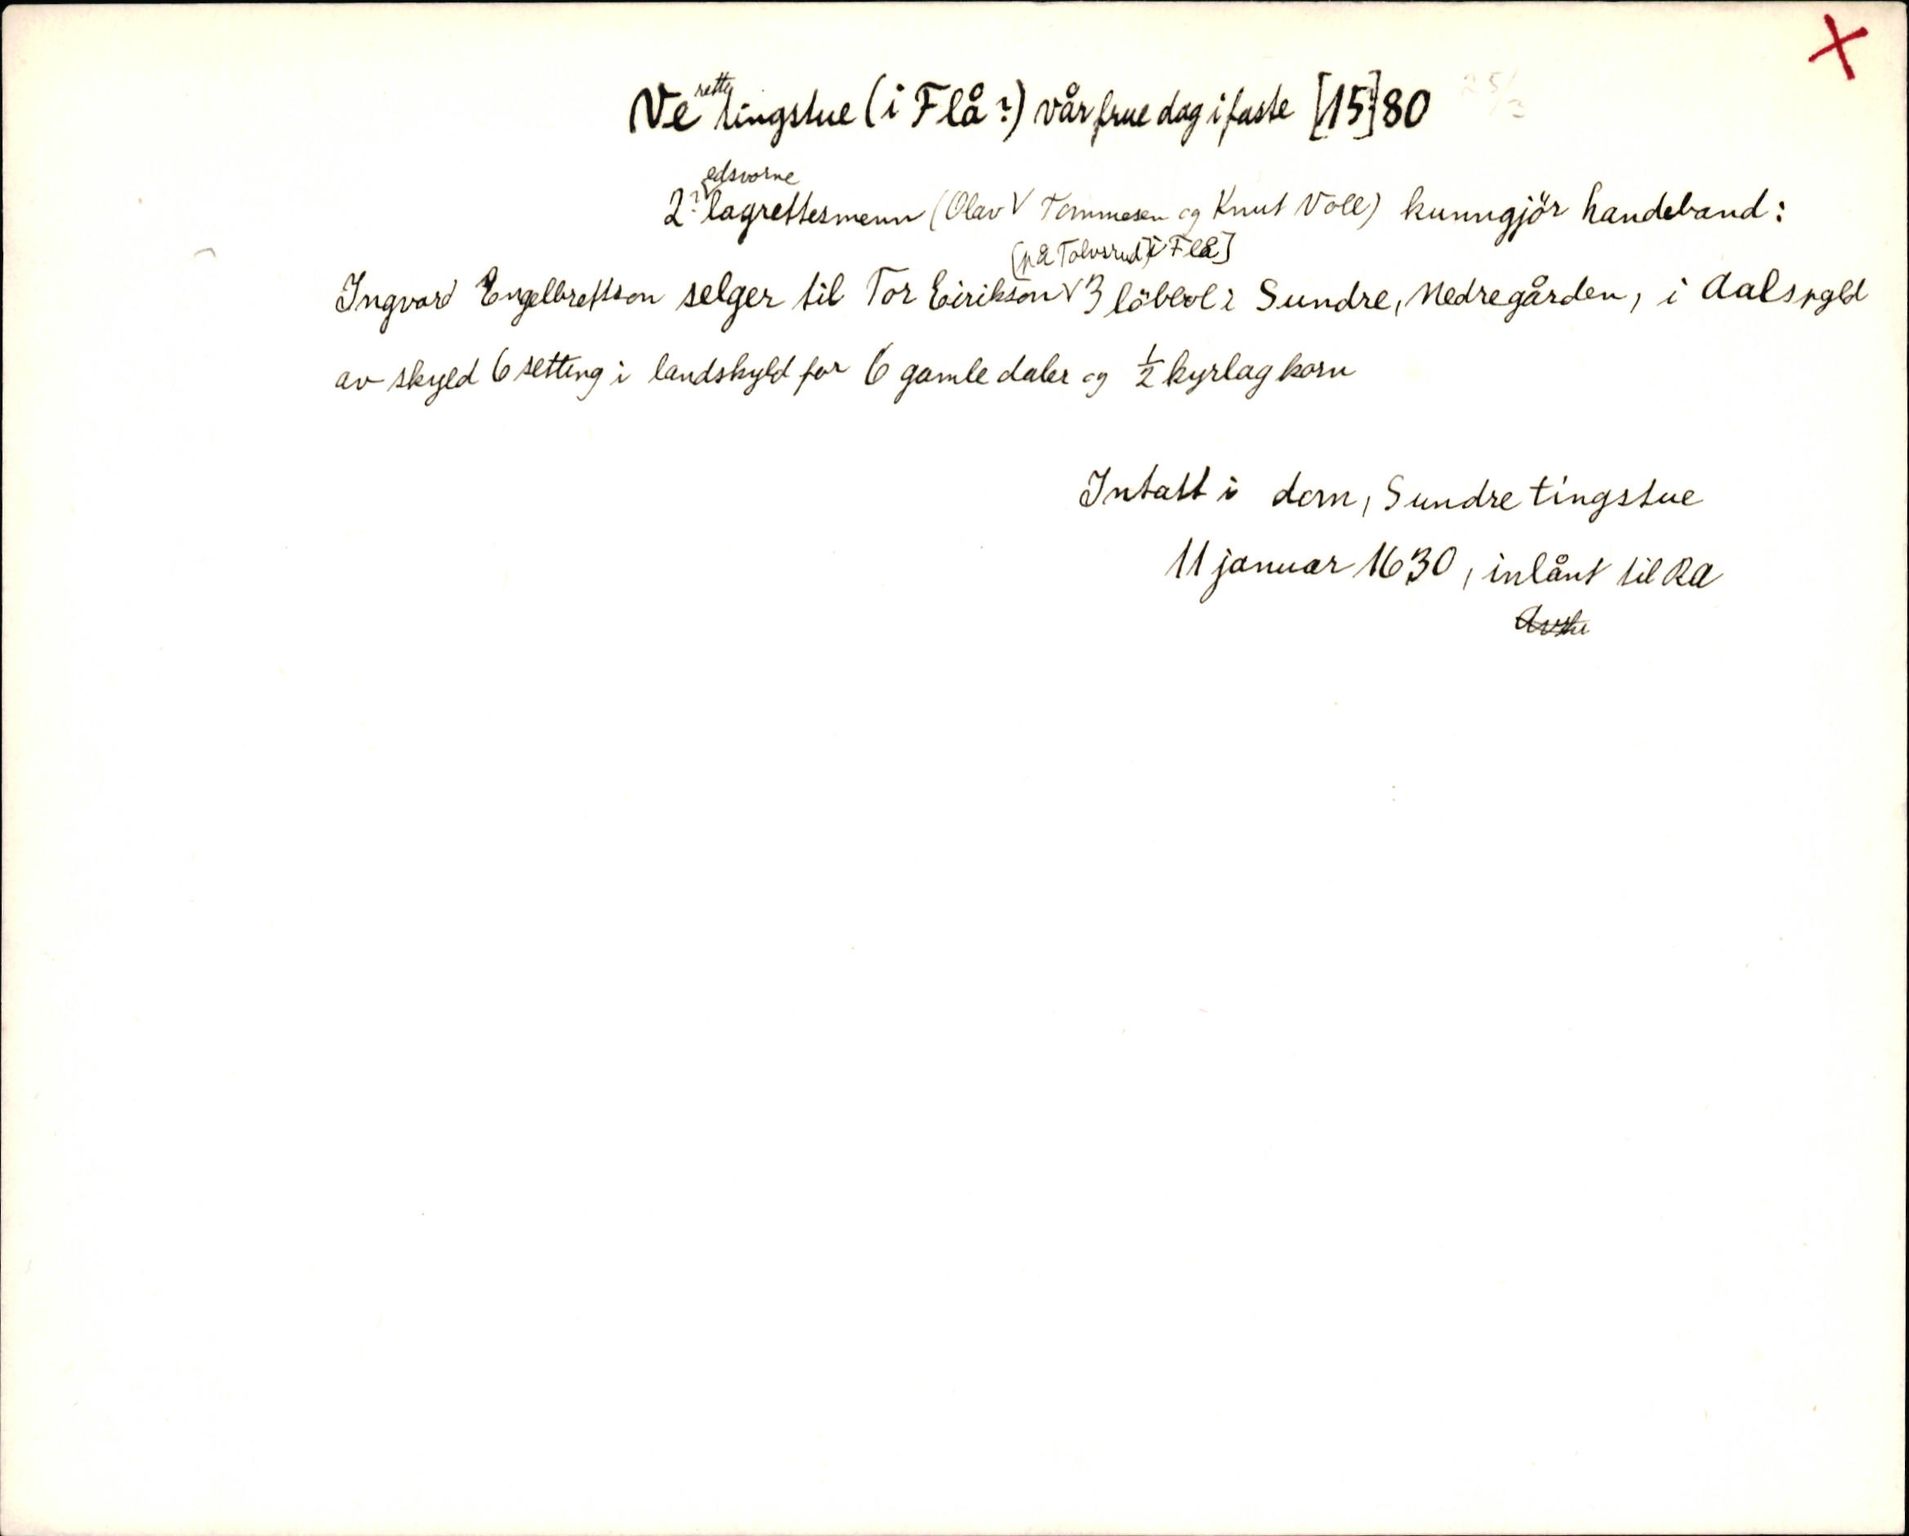 Ve rette tingstue (i Flå?) vår frue dag i faste [15]80 25/3
2? edsvorne lagrettesmenn (Olav V Tommesen og Knut Voll) kunngjör handeband:
[på Tolvsrud i Flå]
Ingvard Engelbrettson selger til Tor Eirikson V 3 löbbol i Sundre, Nedregården, i Aal spgld
av skyld 6 setting i landskyld for 6 gamle daler og ½ kyrlag korn
Intatt i dom, Sundre tingstue
11 januar 1630, inlånt til RA